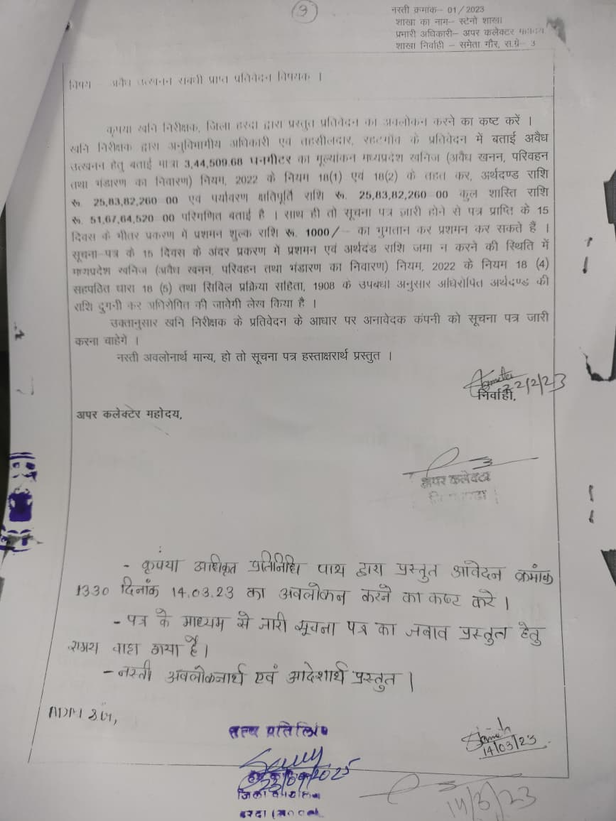 9
नस्ती क्रमांक- 01/2023
शाखा का नाम- स्टेनो शाखा
प्रभारी अधिकारी- अपर कलेक्टर महोदय
शाखा निर्वाही- समेता गौर, स.ग्रे- 3
विषय - अवैध उत्खनन संबंधी प्राप्त प्रतिवेदन विषयक ।
कृपया खनि निरीक्षक, जिला हरदा द्वारा प्रस्तुत प्रतिवेदन का अवलोकन करने का कष्ट करें ।
खनि निरीक्षक द्वारा अनुविभागीय अधिकारी एवं तहसीलदार, रहटगॉव के प्रतिवेदन में बताई अवैध
उत्खनन हेतु बताई मात्रा 3,44,509.68 घनमीटर का मूल्यांकन मध्यप्रदेश खनिज (अवैध खनन, परिवहन
तथा भंडारण का निवारण) नियम, 2022 के नियम 18(1) एवं 18(2) के तहत कर, अर्थदण्ड राशि
रू. 25,83,82,260-00 एवं पर्यावरण क्षतिपूर्ति राशि रू. 25,83,82,260-00 कुल शास्ति राशि
रू. 51,67,64,520-00 परिगणित बताई है । साथ ही तो सूचना पत्र जारी होने से पत्र प्राप्ति के 15
दिवस के भीतर प्रकरण में प्रशमन शुल्क राशि रू. 1000/- का भुगतान कर प्रशमन कर सकते है ।
सूचना-पत्र के 15 दिवस के अंदर प्रकरण में प्रशमन एवं अर्थदंड राशि जमा न करने की स्थिति में
मध्यप्रदेश खनिज (अवैध खनन, परिवहन तथा भंडारण का निवारण) नियम, 2022 के नियम 18 (4)
सहपठित धारा 18 (5) तथा सिविल प्रक्रिया संहिता, 1908 के उपबंधो अनुसार अधिरोपित अर्थदण्ड की
राशि दुगनी कर अधिरोपित की जायेगी लेख किया है ।
उक्तानुसार खनि निरीक्षक के प्रतिवेदन के आधार पर अनावेदक कंपनी को सूचना पत्र जारी
करना चाहेगे ।
नस्ती अवलोनार्थ मान्य, हो तो सूचना पत्र हस्ताक्षरार्थ प्रस्तुत ।
22/2/23
निर्वाही,
अपर कलेक्टर महोदय,
अपर कलेक्टर
- कृपया अधिकृत प्रतिनिधि पाथ द्वारा प्रस्तुत आवेदन क्रमांक
1330 दिनांक 14.03.23 का अवलोकन करने का कष्ट करे ।
- पत्र के माध्यम से जारी सूचना पत्र का जवाब प्रस्तुत हेतु
समय चाहा गया है ।
- नस्ती अवलोकनार्थ एवं आदेशार्थ प्रस्तुत ।
सत्य प्रतिलिपि
14/03/23
हरदा (म०प्र०)